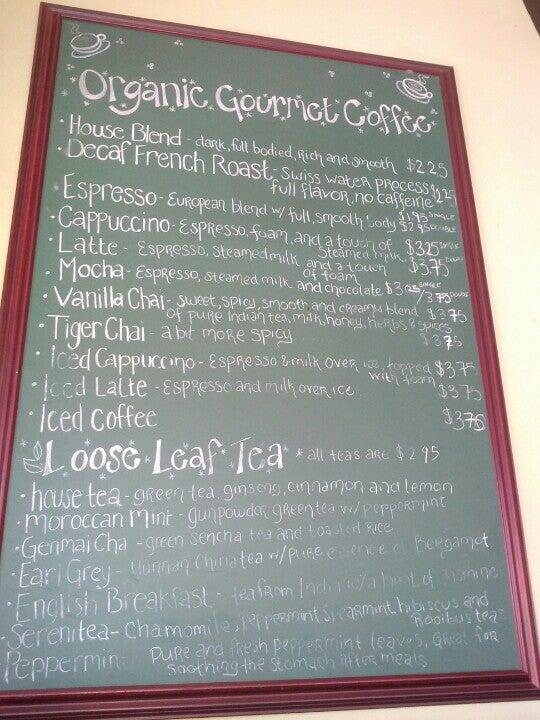 Organic Gourmet Coffee
· House Blend - dark, full bodied, rich and smooth $2.25
· Decaf French Roast - Swiss water process
full flavor, no caffeine
Espresso - European blend w/ full, smooth body $1.95 single
$2.95 double
· Cappuccino - Espresso, foam, and a touch of $3.25 single
steamed milk
· Latte - Espresso, steamed milk and a touch $3.75
of foam
· Mocha - Espresso, steamed milk and chocolate single
/3.75 double
· Vanilla Chai - sweet, spicy, smooth and creamy blend $3.75
of pure Indian tea, milk, honey, herbs & spices
· Tiger Chai - a bit more spicy $3.75
· Iced Cappuccino - Espresso & milk over ice, topped $3.75
with foam
· Iced Latte - Espresso and milk over ice $3.75
· Iced Coffee $3.75
Loose Leaf Tea * all teas are $2.95
· house tea - green tea, ginseng, cinnamon and lemon
· Moroccan Mint - gunpowder green tea w/ peppermint
· Genmai Cha - green sencha tea and toasted rice
· Earl Grey - Yunnan China tea w/ pure essence of Bergamot
· English Breakfast - tea from India w/ a hint of Jasmine
· Serenitea - Chamomile, peppermint, spearmint, hibiscus and
Rooibus tea
· Peppermint pure and fresh peppermint leaves, Great for
soothing the stomach after meals